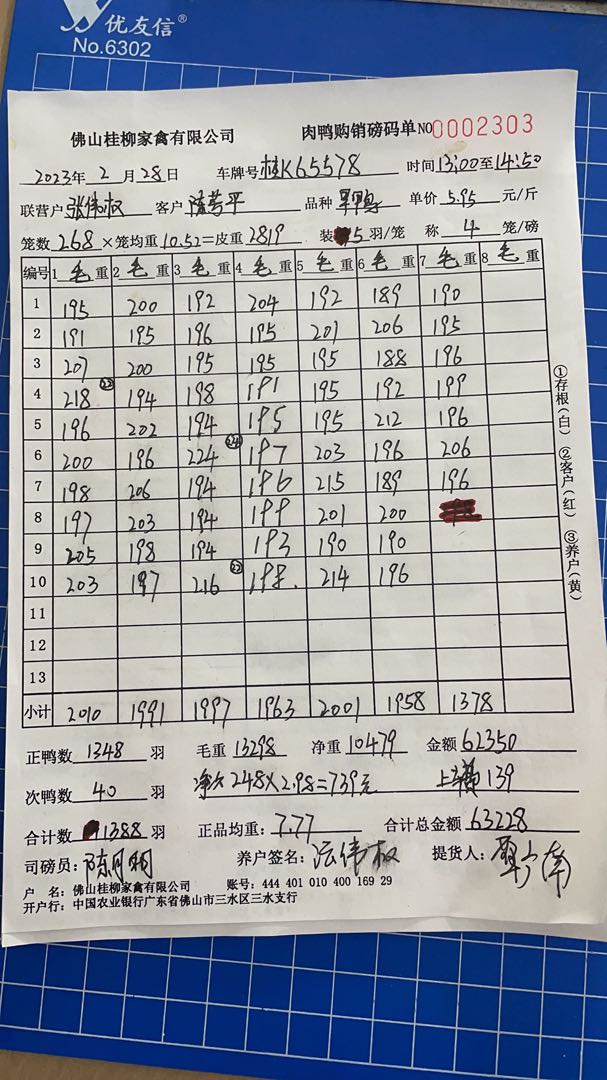 优友信®
No.6302
佛山桂柳家禽有限公司 肉鸭购销磅码单 NO 0002303
2023年 2 月 28 日 车牌号 桂K65578 时间 13:00 至 14:50
联营户 张伟权 客户 陈芳平 品种 鸭 单价 5.95 元/斤
笼数 268 ×笼均重 10.52=皮重 2819 装 5 羽/笼 称 4 笼/磅
编号 1 毛 重 2 毛 重 3 毛 重 4 毛 重 5 毛 重 6 毛 重 7 毛 重 8 毛 重
1 195 200 192 204 192 189 190
2 191 195 196 195 201 206 195
3 207 200 195 195 195 188 196
4 218 22 194 198 191 195 192 199
5 196 202 194 195 195 212 196
6 200 196 224 197 203 196 206
7 198 206 194 196 215 189 196
8 197 203 194 199 201 200
9 205 198 194 193 190 190
10 203 197 216 22 198 214 196
11
12
13
小计 2010 1991 1997 1963 2001 1958 1378
正鸭数 1348 羽 毛重 13298 净重 10479 金额 62350
次鸭数 40 羽 净欠 248×2.98=739元 139
合计数 1388 羽 正品均重: 7.77 合计总金额 63228
司磅员: 养户签名: 伟权 提货人:
户 名: 佛山桂柳家禽有限公司 账号: 444 401 010 400 169 29
开户行: 中国农业银行广东省佛山市三水区三水支行
①存根(白) ②客户(红) ③养户(黄)